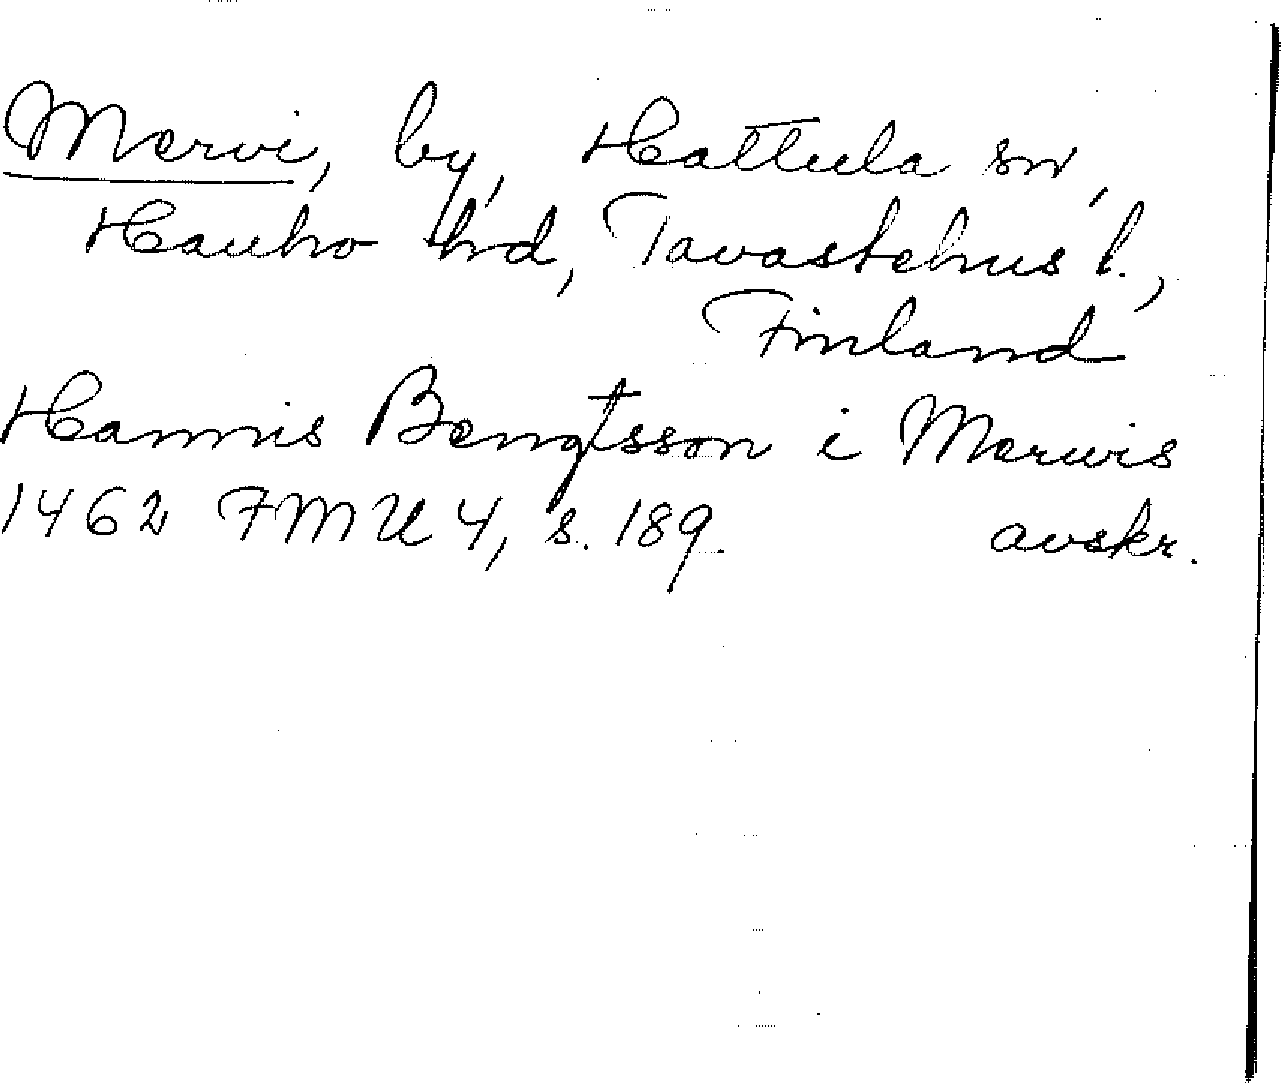 Mervi, by, Hattula sn,
Hauho hd, Tavastehus l.,
Finland
Hannis Bengtsson i Merwis
1462 FMU 4, s. 189. avskr.